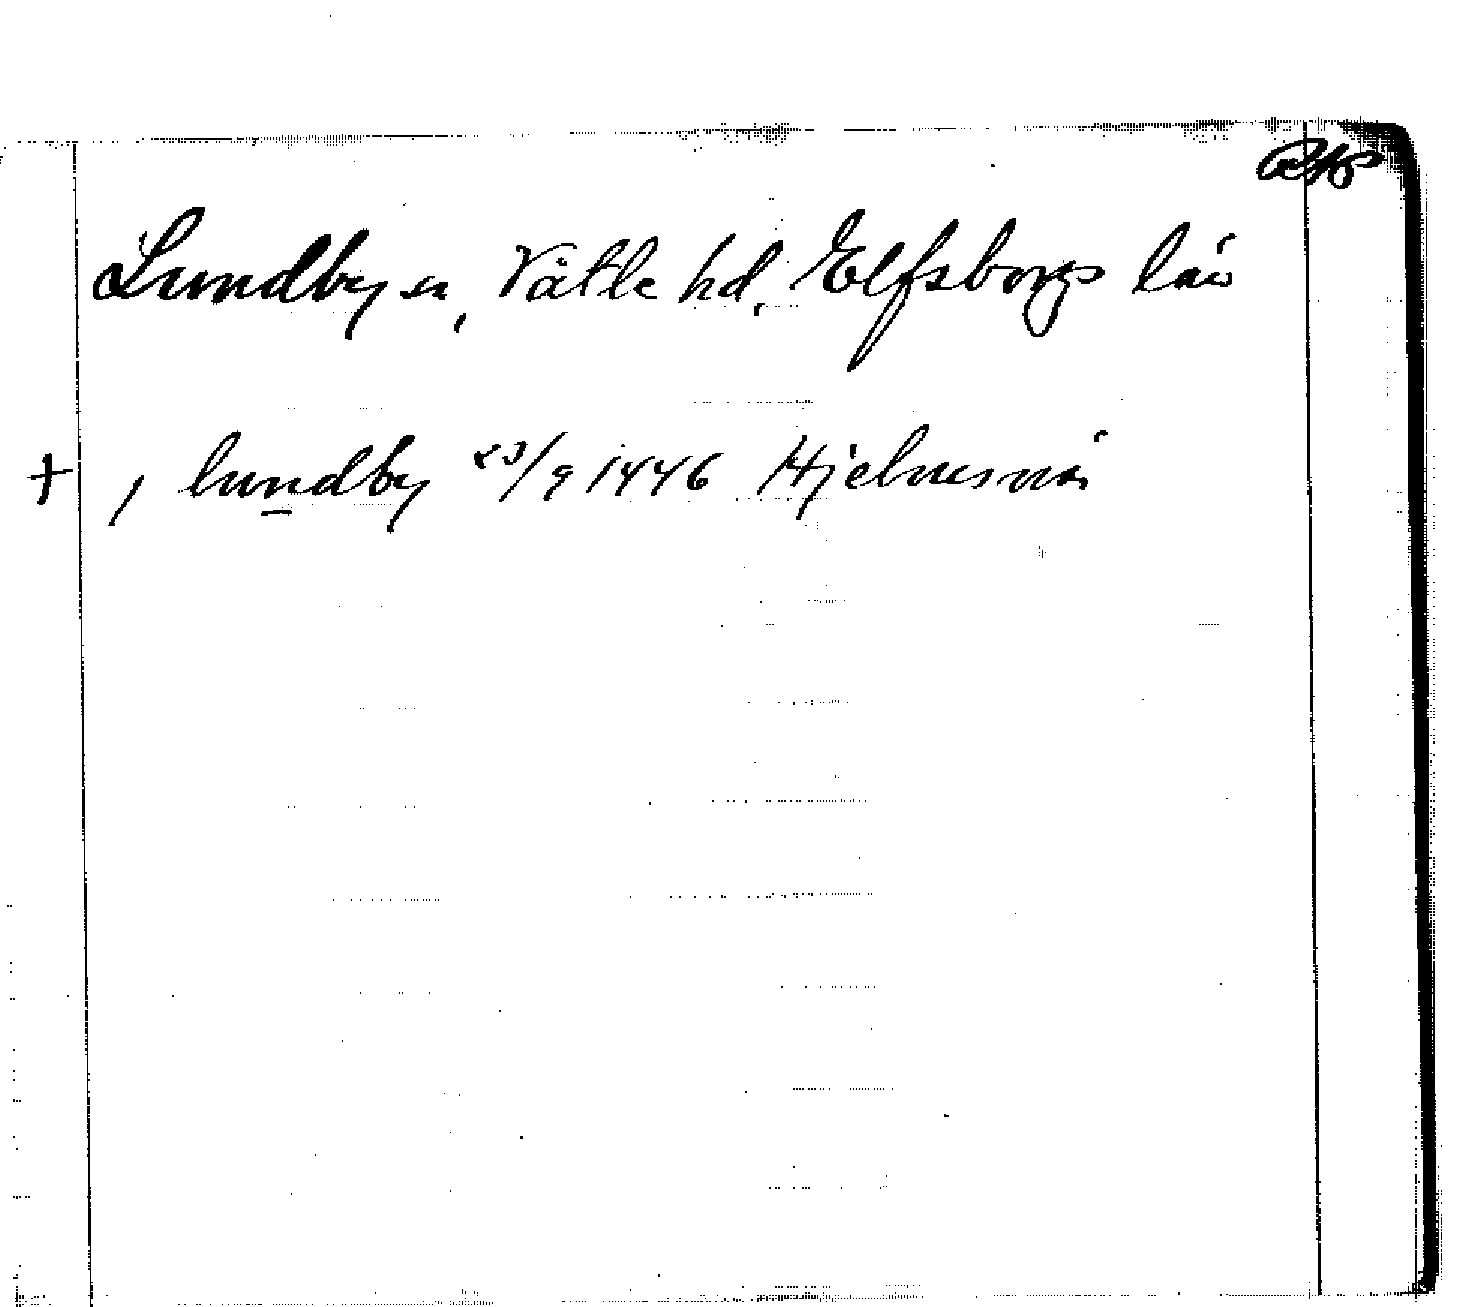 Lundby sn, Vätle hd, Elfsborgs län
+ , lundby 23/9 1446 Hjelmsnäs